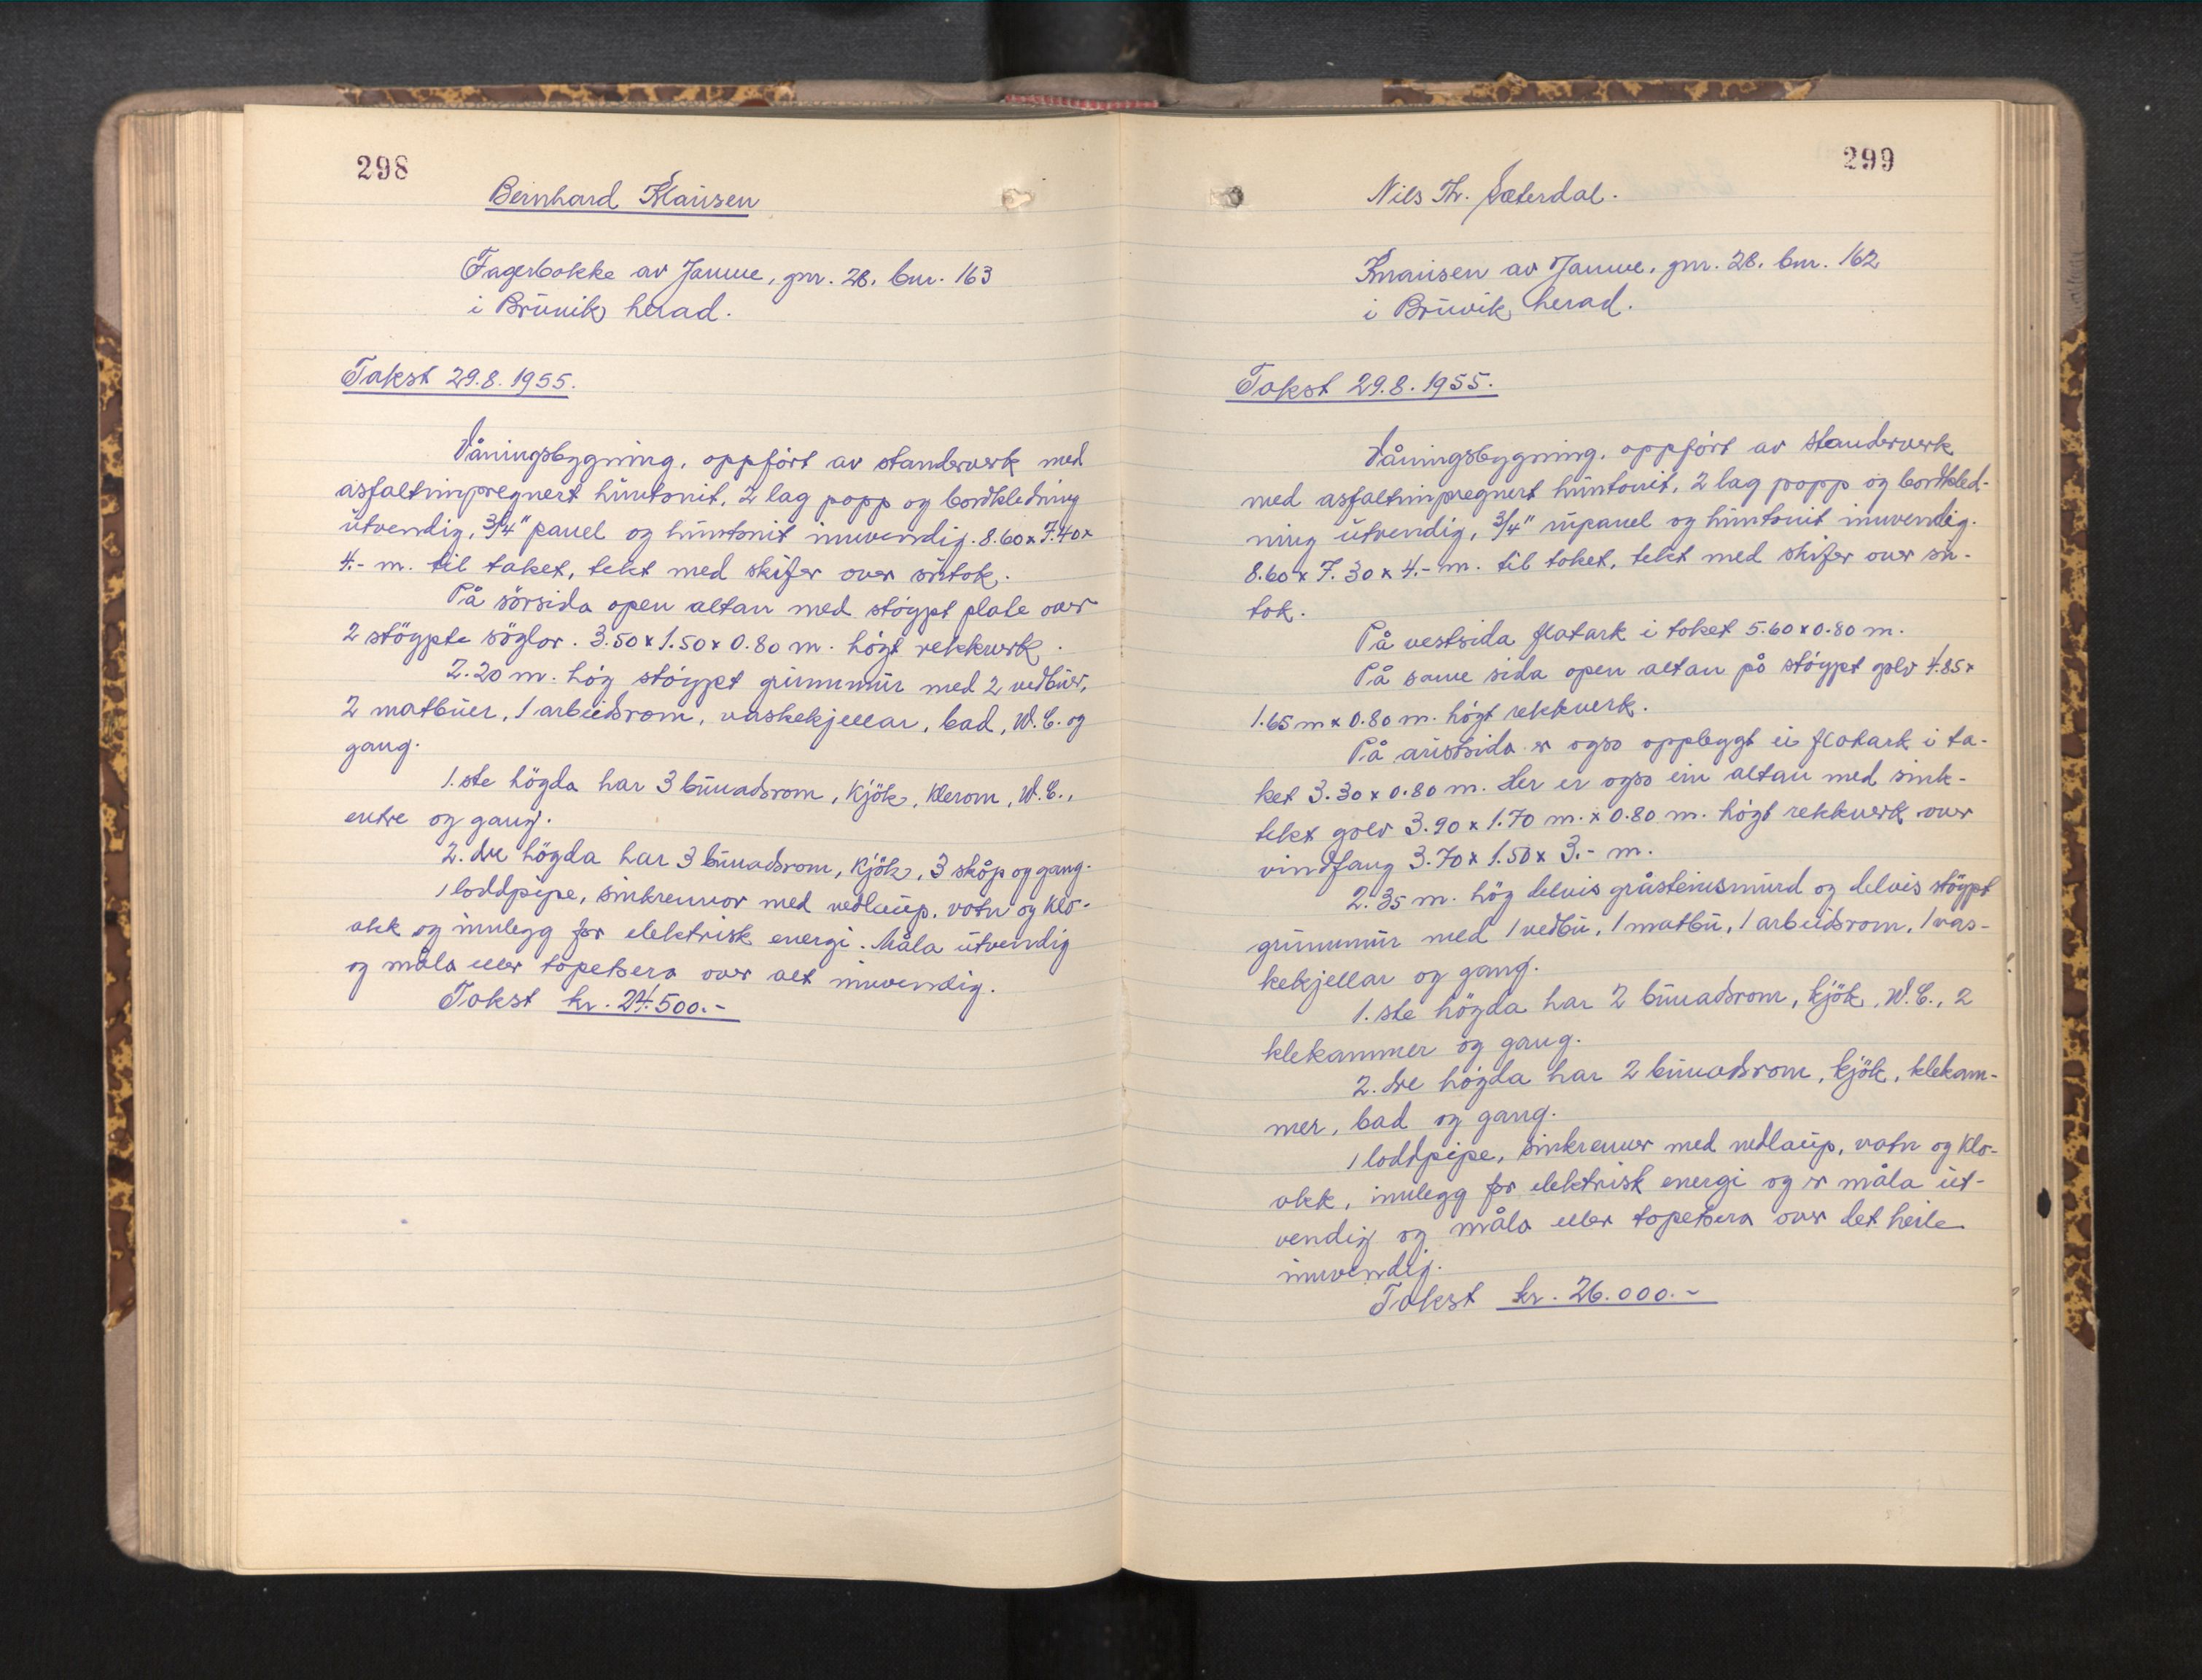 298
Bernhard Klausen
Fagerbakke av Jamne, gnr. 28, bnr. 163
i Bruvik herad.
Takst 29.8.1955.
Våningsbygning, oppfört av standerverk med
asfaltimpregnert huntonit, 2 lag papp og bordkledning
utvendig, 3/4" panel og huntonit innvendig. 8.60 x 7.40 x
4.- m. til taket, tekt med skifer over sutak.
På sörsida open altan med stöypt plate over
2 stöypte söylor. 3.50 x 1.50 x 0.80 m. högt rekkverk.
2.20 m. hög stöypt grunnmur med 2 vedbuer,
2 matbuer, 1 arbeidsrom, vaskekjellar, bad, W.C. og
gang.
1.ste högda har 3 buuadsrom, kjök, klerom, W.C.,
entre og gang.
2.dre högda har 3 buuadsrom, kjök, 3 skåp og gang.
1 loddpipe, sinkrennor med nedlaup, vatn og klo-
akk og innlegg for elektrisk energi. Måla utvendig
og måla eller tapetsera over alt innvendig.
Takst kr. 24.500.-
299
Nils Th. Sæterdal.
Knausen av Jamne, gnr. 28, bnr. 162
i Bruvik herad.
Takst 29.8.1955.
Våningsbygning, oppfört av standerverk
med asfaltimpregnert huntonit, 2 lag papp og bordkled-
ning utvendig, 3/4" rupanel og huntonit innvendig.
8.60 x 7.30 x 4.- m. til taket, tekt med skifer over su-
tak.
På vestsida flatark i taket 5.60 x 0.80 m.
På same sida open altan på stöypt golv 4.85 x
1.65 m x 0.80 m. högt rekkverk.
På austsida er ogso oppbygt ei flatark i ta-
ket 3.30 x 0.80 m. Her er ogso ein altan med sink-
tekt golv 3.90 x 1.70 m. x 0.80 m. högt rekkverk over
vindfang 3.70 x 1.50 x 3.- m.
2.35 m. hög delvis gråsteinsmurd og delvis stöypt
grunnmur med 1 vedbu, 1 matbu, 1 arbeidsrom, 1 vas-
kekjellar og gang.
1.ste högda har 2 buuadsrom, kjök, W.C., 2
klekammer og gang.
2.dre högda har 2 buuadsrom, kjök, klekam-
mer, bad og gang.
1 loddpipe, sinkrenner med nedlaup, vatn og klo-
akk, innlegg for elektrisk energi og er måla ut-
vendig og måla eller tapetsera over det heile
innvendig.
Takst kr. 26.000.-